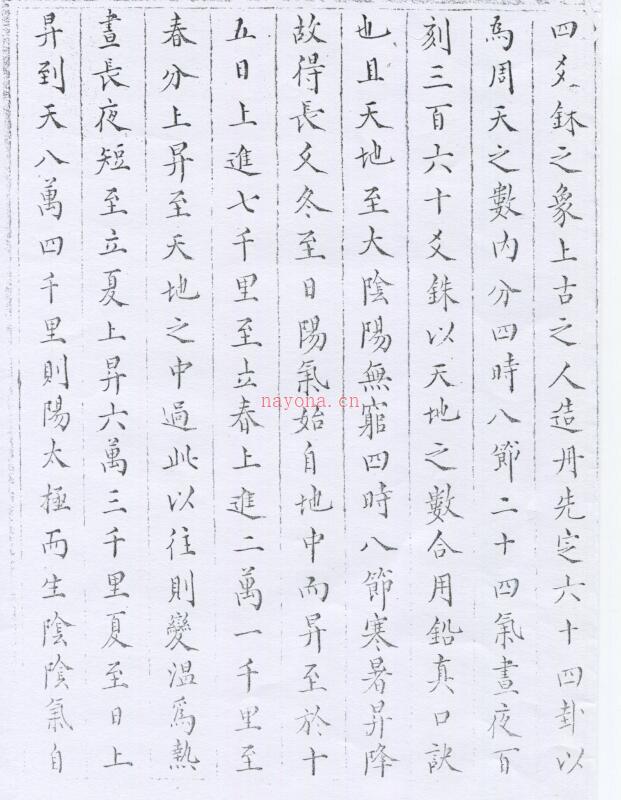 四爻鉌之象上古之人造丹先定六十四卦以
為周天之數內分四時八節二十四氣晝夜百
刻三百六十爻銖以天地之數合用鉛真口訣
也且天地至大陰陽無窮四時八節寒暑昇降
故得長久冬至日陽氣始自地中而昇至於十
五日上進七千里至立春上進二萬一千里至
春分上昇至天地之中過此以往則變溫爲熱
晝長夜短至立夏上昇六萬三千里夏至日上
昇到天八萬四千里則陽太極而生陰陰氣自
nayona.cn